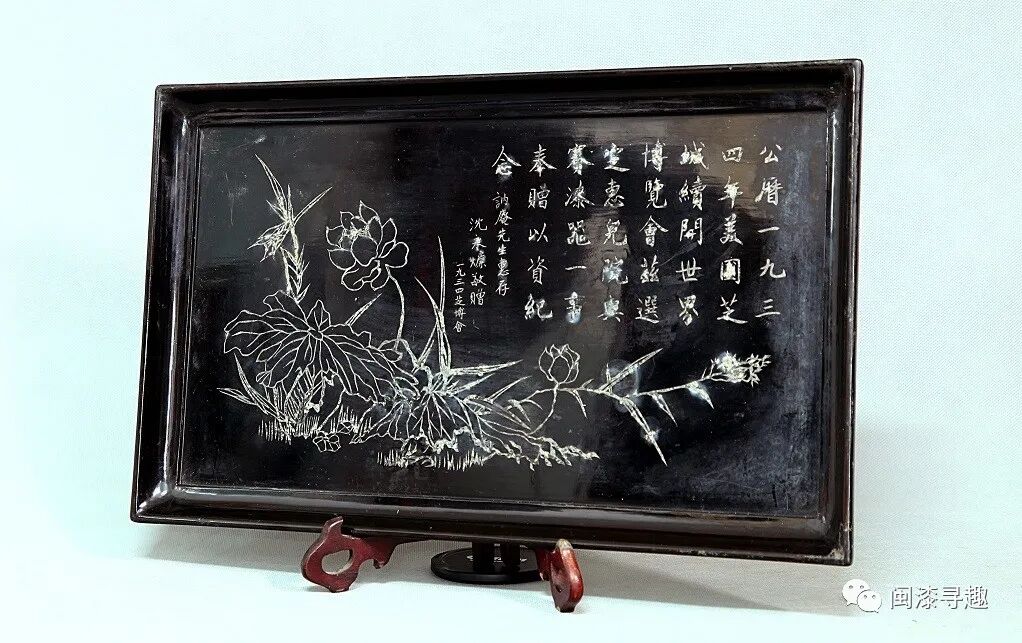 公曆一九三
四年美國芝
城續開世界
博覽會茲選
定惠兒院與
賽漆器一事
奉贈以資紀
念
訥庵先生惠存
沈來爌敬贈
一九三四芝博會
闽漆寻趣